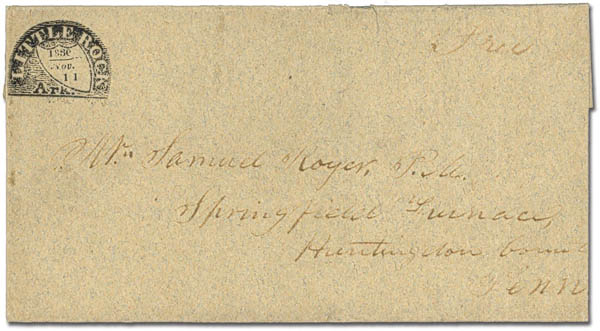 LITTLE ROCK
1830
NOV.
11
Ark.
Free
Mr. Samuel Royer, P.M.
Springfield Furnace,
Huntingdon
Penn